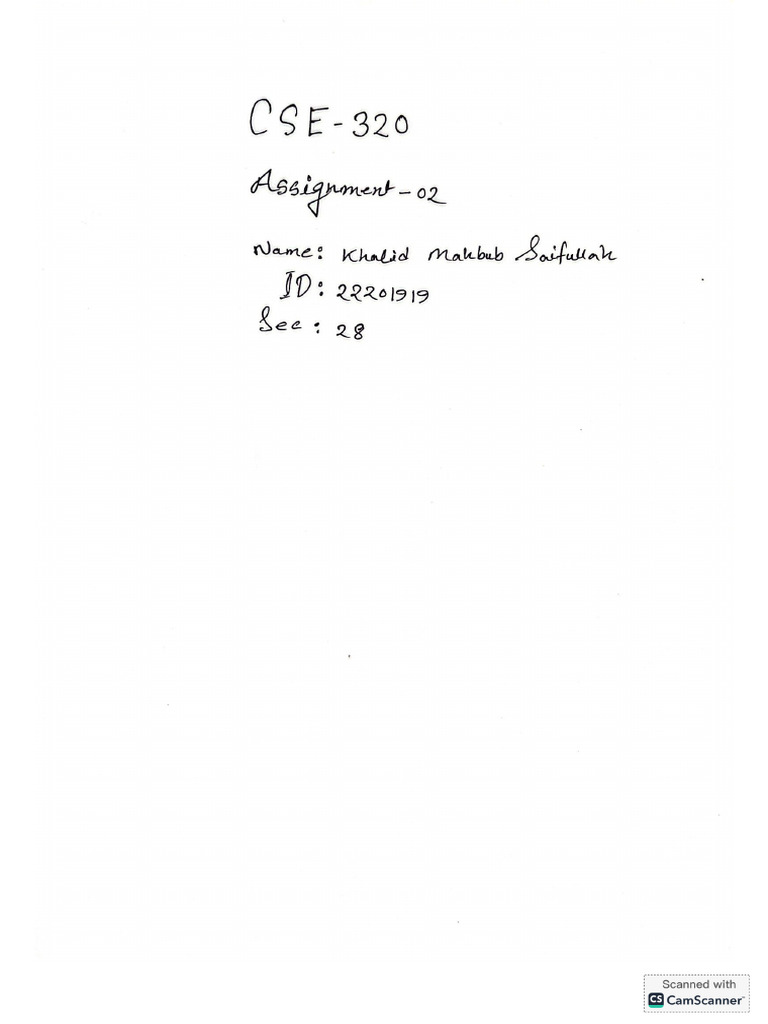 CSE-320
Assignment-02
Name: Khalid Mahbub Saifullah
ID: 22201919
Sec: 28
Scanned with
CS CamScanner